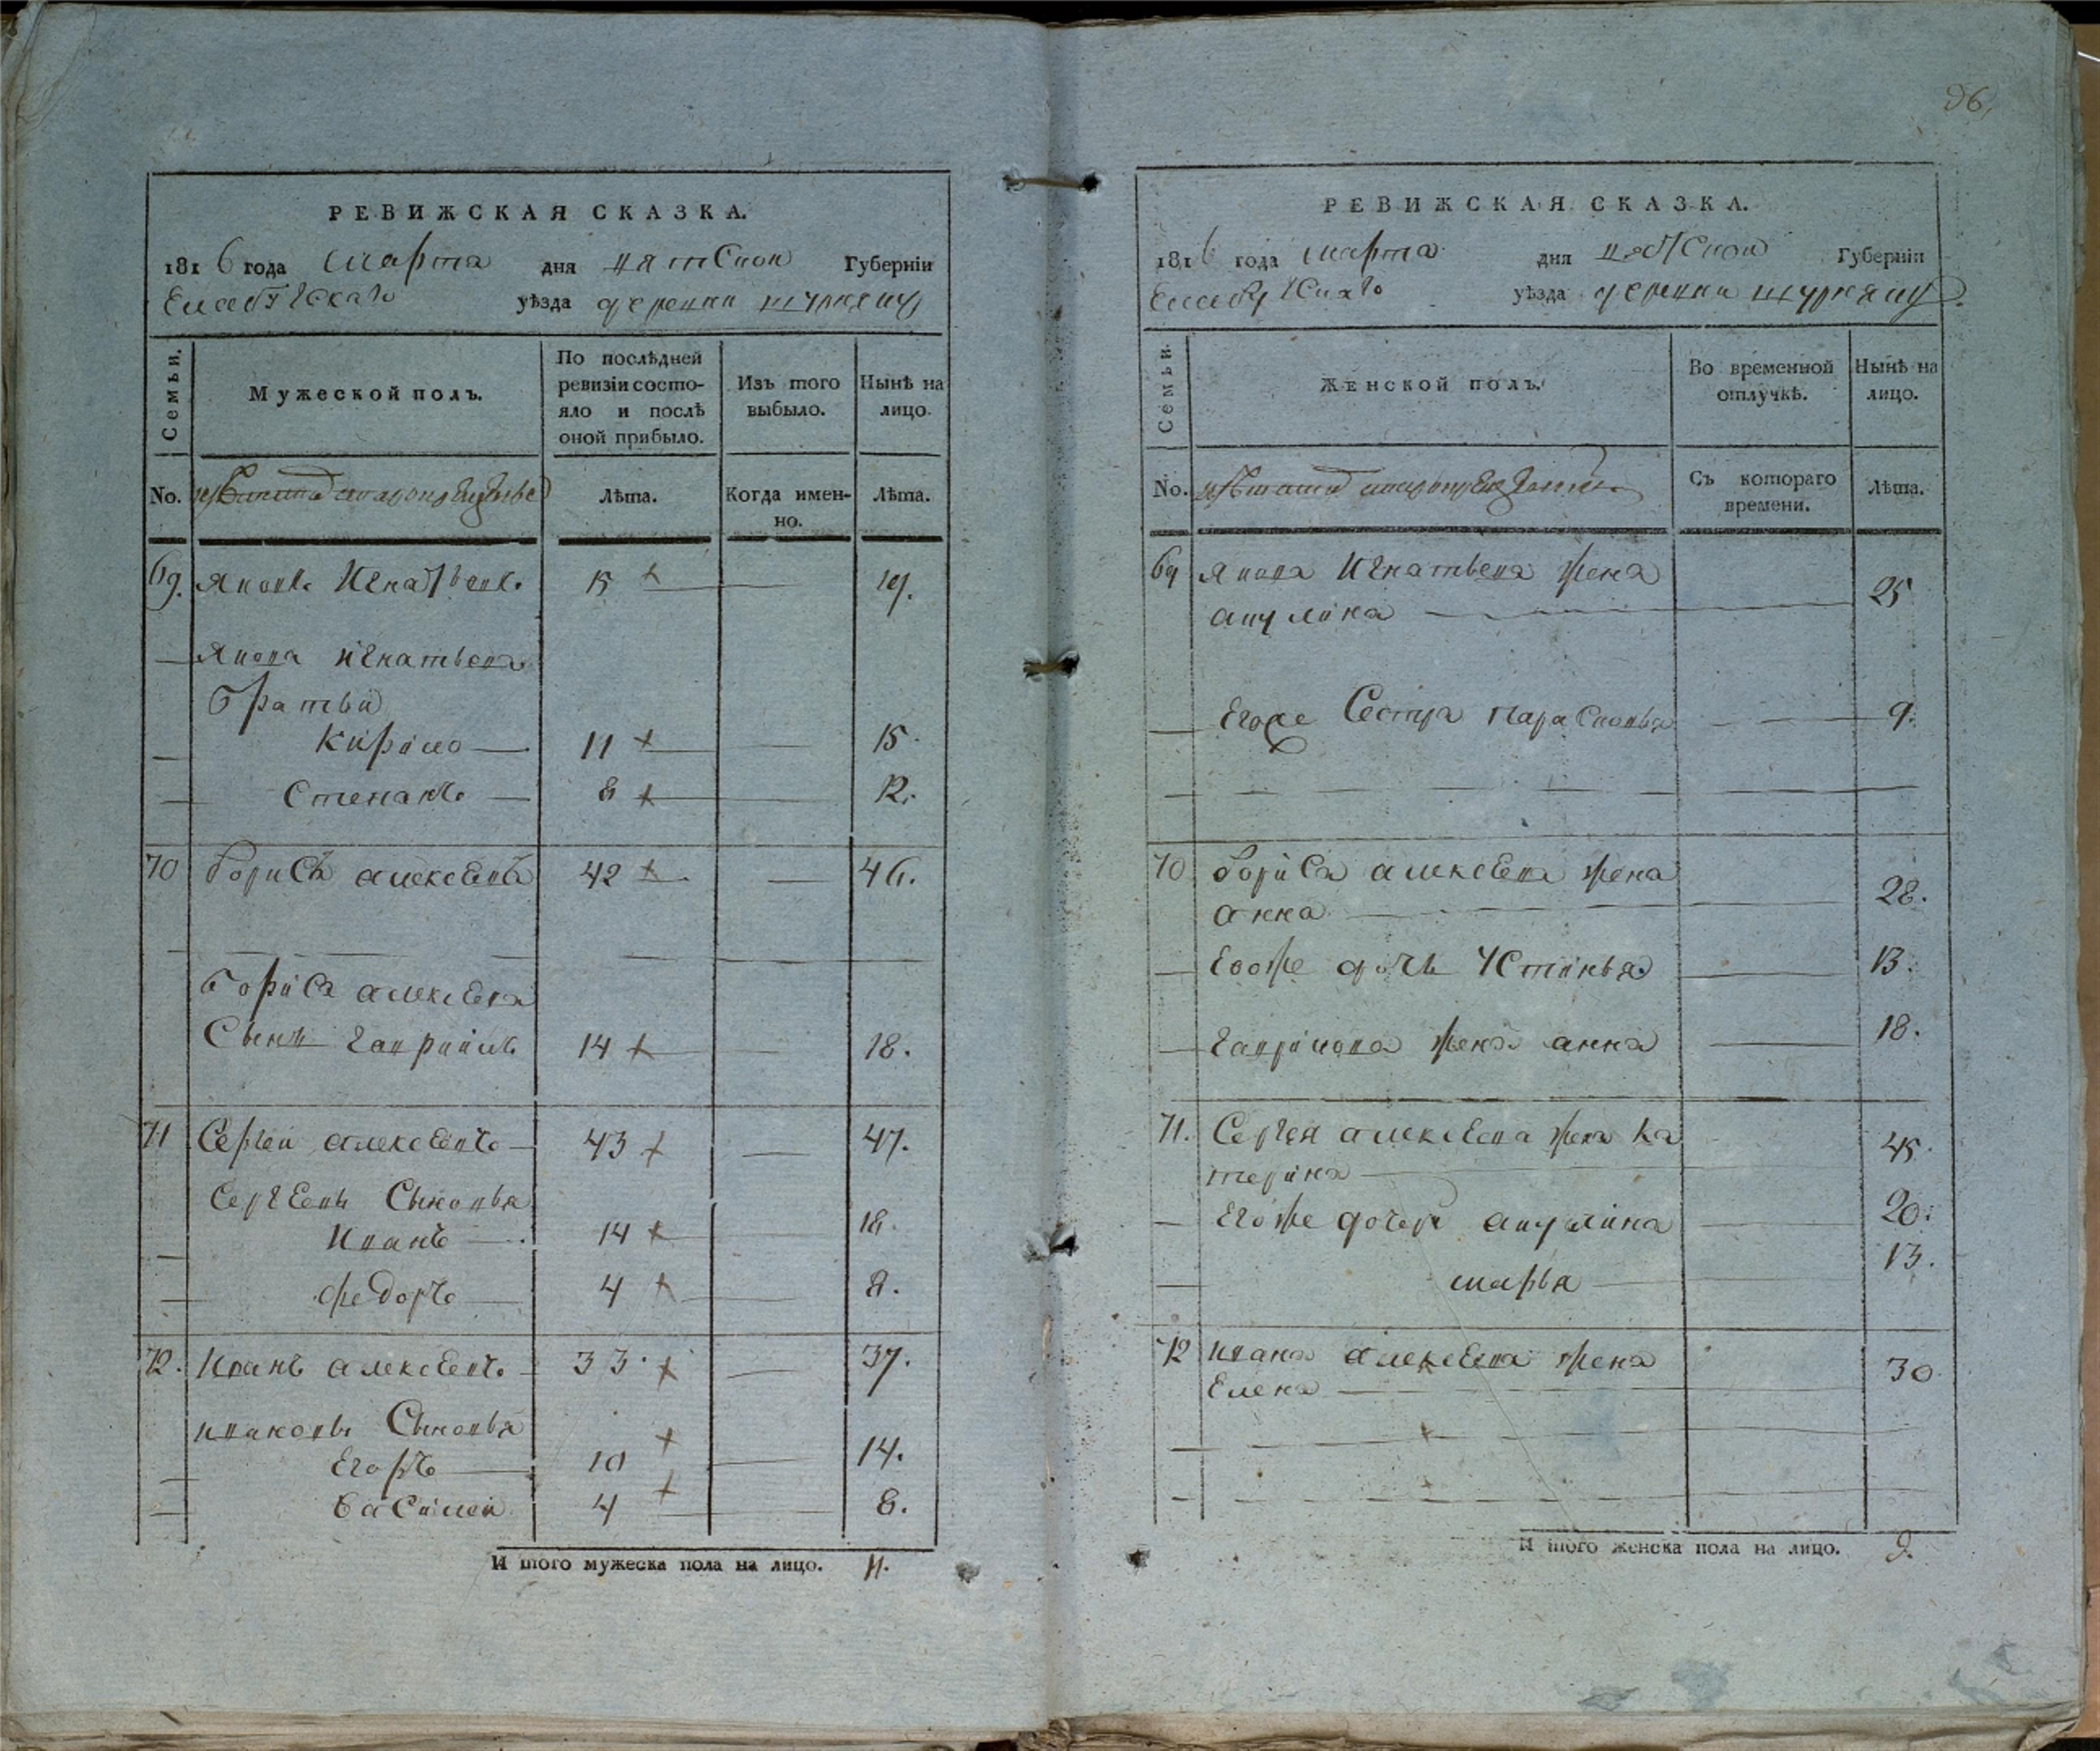 96
РЕВИЖСКАЯ СКАЗКА.
1816 года марта дня вятской Губерніи
Елабугскаго уѣзда деревни
Семьи.
Мужеской полъ.
По послѣдней ревизіи состо-
яло и послѣ
оной прибыло.
Изъ того
выбыло.
Нынѣ на
лицо.
No.
Лѣта.
Когда имен-
но.
Лѣта.
69. Яковъ Игнатьевъ 15 19.
Якова игнатьева
братьи
Кирило 11 15.
Степанъ 8 12.
70 борисъ алексеевъ 42 46.
бориса алексеева
Сынъ гавриилъ 14 18.
71 Сергей алексеевъ 43 47.
Сергеевы Сыновья
Иванъ 14 18.
федоръ 4 8.
72. Иванъ алексеевъ 33 37.
ивановы Сыновья
Егоръ 10 14.
василей 4 8.
И того мужеска пола на лицо. 11.
РЕВИЖСКАЯ СКАЗКА.
1816 года марта дня вятской Губерніи
Елабугскаго уѣзда деревни
Семьи.
Женской полъ.
Во временной
отлучкѣ.
Нынѣ на
лицо.
No.
Съ котораго
времени.
Лѣта.
69 Якова Игнатьева жена
акулина 25
Егоже Сестра парасковья 9.
70 бориса алексеева жена
анна 28.
Егоже дочь Устинья 13.
гаврилова жена анна 18.
71. Сергея алексеева жена ка
терина 45.
Егоже дочери акулина 20.
марья 13.
72 ивана алексеева жена
Елена 30
И того женска пола на лицо. 9.